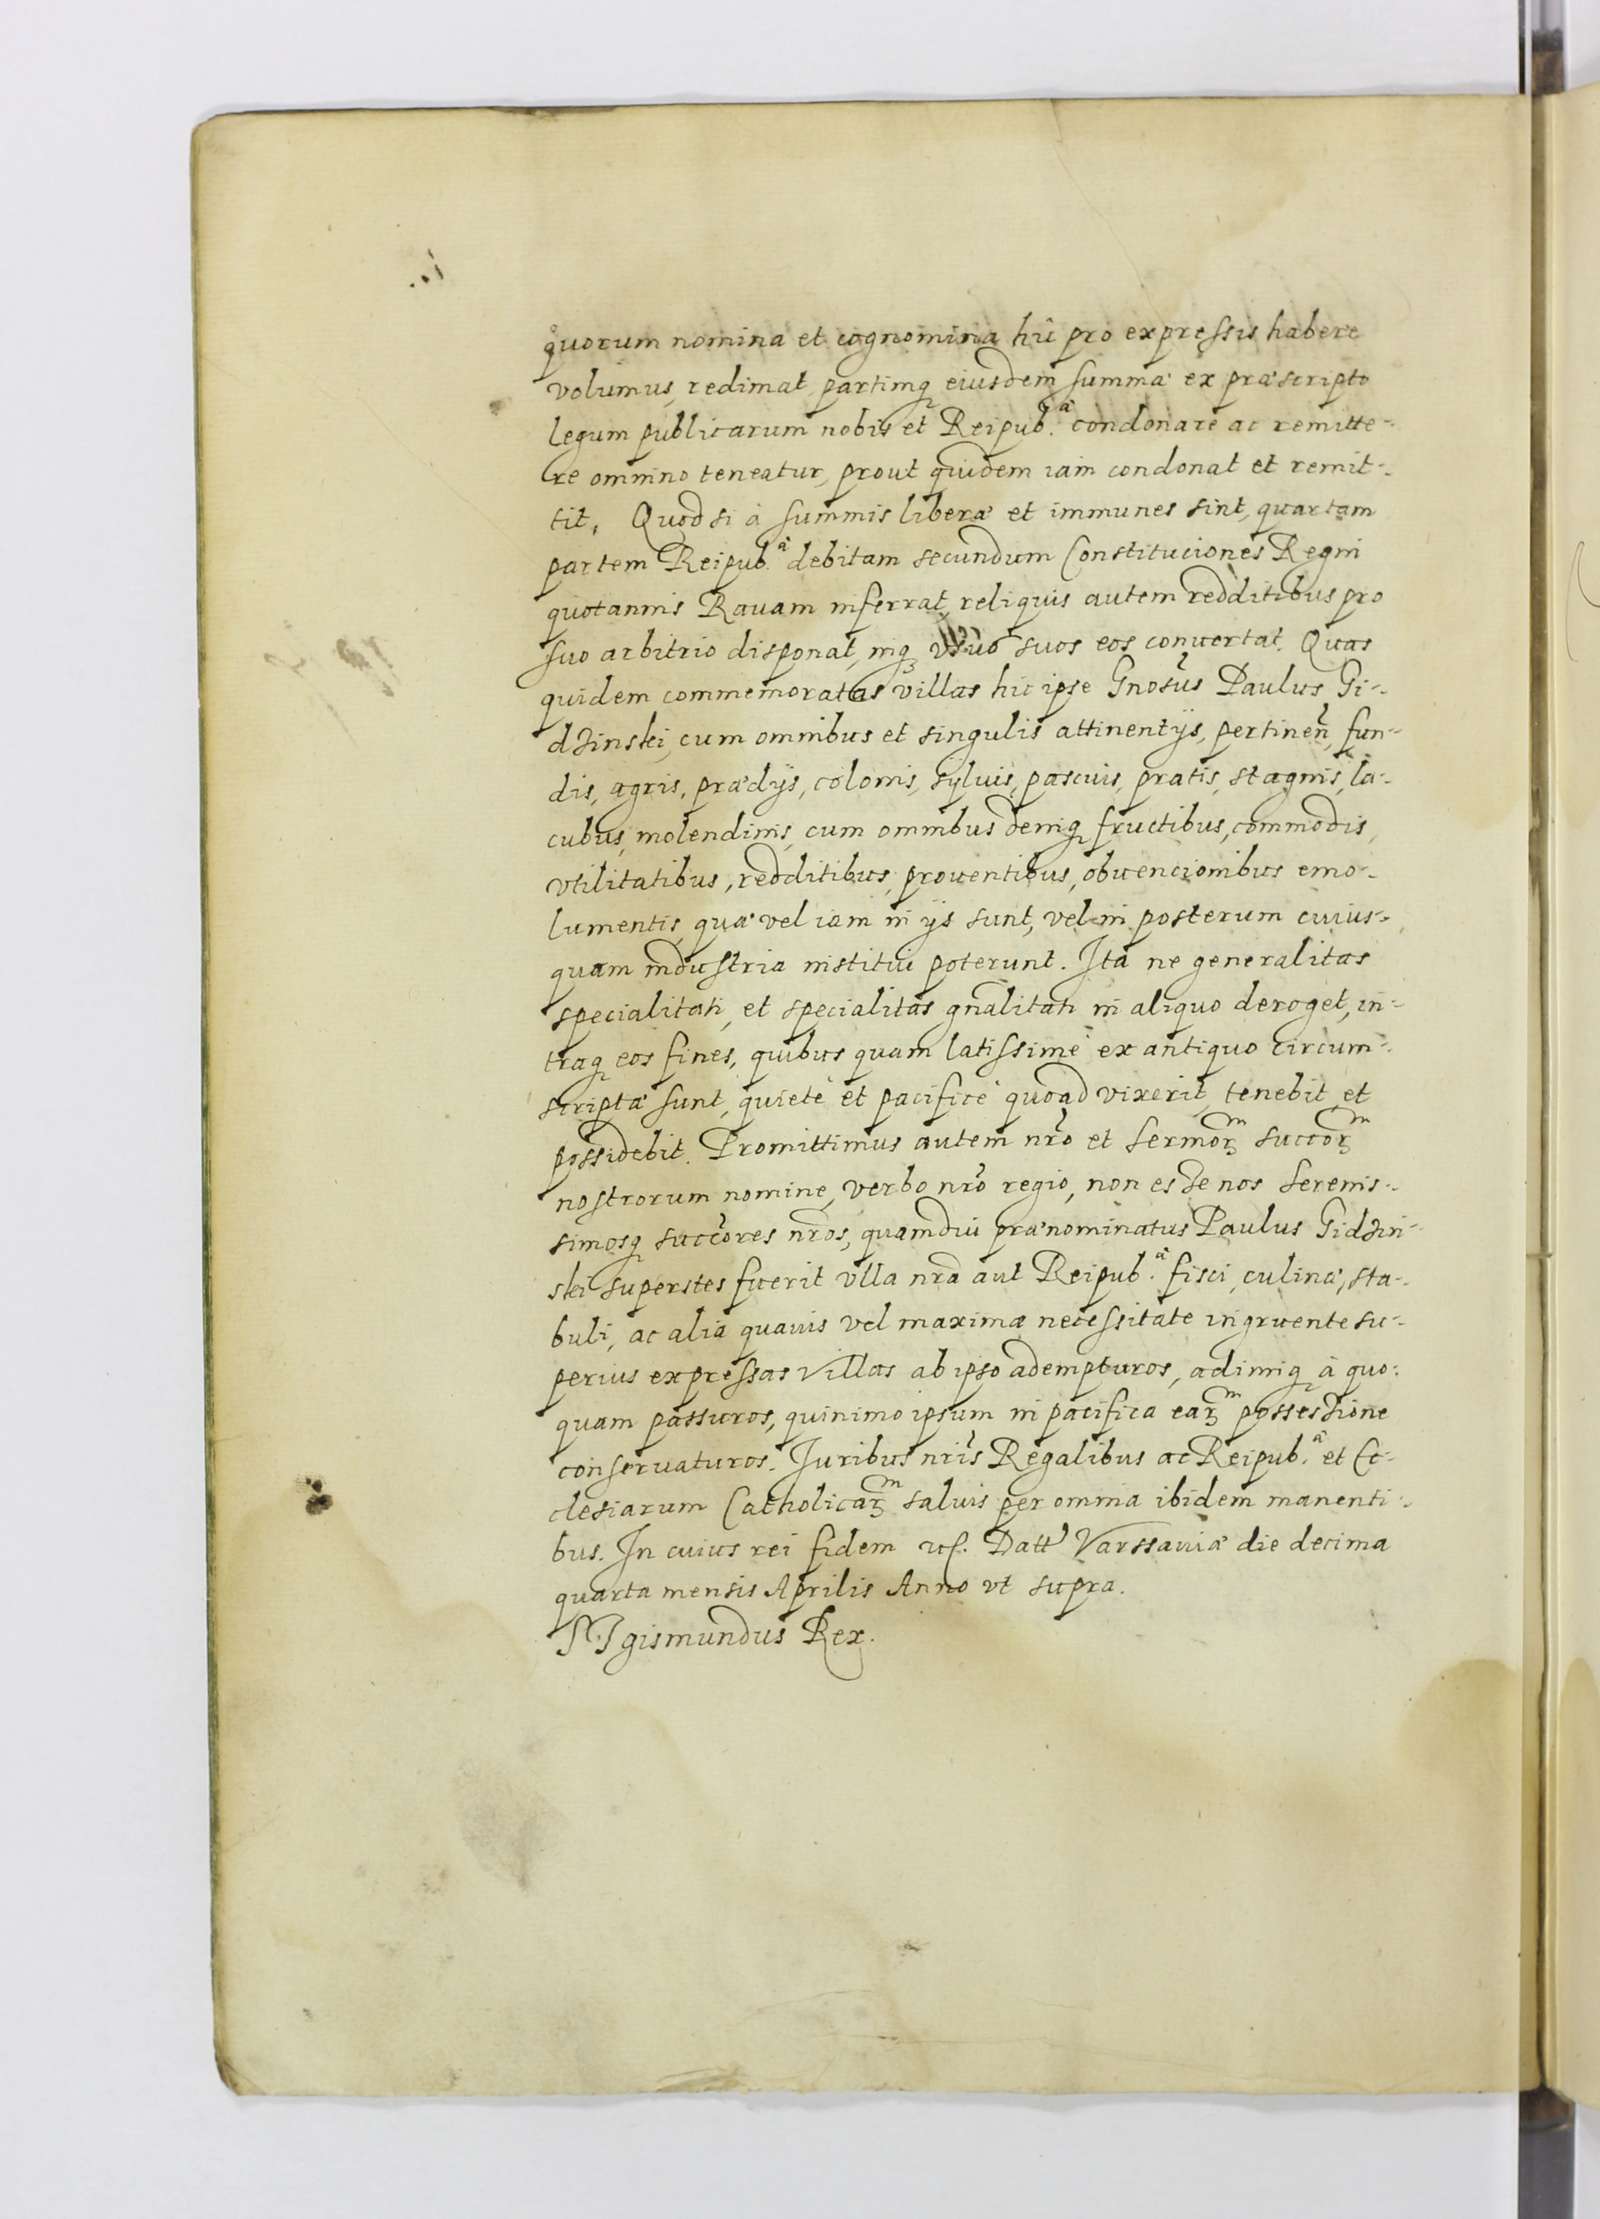 quorum nomina et cognomina hîc pro expressis habere
volumus, redimat partimq́ȝ eiusdem summæ ex præscripto
legum publicarum nobis et Reipub.ᵃ̀ condonare ac remitte-
re omnino teneatur, prout quidem iam condonat et remit-
tit. Quod si à summis liberæ et immunes sint, quartam
partem Reipub.ᵃ̀ debitam secundum Constituciones Regni
quotannis Rauam inferrat, reliquis autem redditibus pro
suo arbitrio disponat, inqȝ suos eos conuertat. Quas
quidem commemoratas villas hic ipse Gnosùs Paulus Gi-
dzinski, cum omnibus et singulis attinentijs, pertineñ, fun-
dis, agris, prædijs, colonis, syluis, pascuis, pratis, stagnis, la-
cubus, molendinis, cum omnibus deniqȝ fructibus, commodis,
vtilitatibus, redditibus, prouentibus, obuencionibus emo-
lumentis, quæ vel iam in ijs sunt, vel in posterum cuius-
quam industria institui poterunt. Ita ne generalitas
specialitati, et specialitas gñalitati in aliquo deroget, in-
traqȝ eos fines, quibus quam latissimè ex antiquo circum-
scriptæ sunt, quietè et pacificè quoad vixerit, tenebit et
possidebit. Promittimus autem nr̃o et Sermorꝫᵐ succorꝫᵐ
nostrorum nomine, verbo nr̃o regio, non esse nos Serenis-
simosqȝ succores nr̃os, quamdiu prænominatus Paulus Gidzin-
ski superstes fuerit vlla nr̃a aut Reipub.ᵃ̀ fisci, culinæ, sta-
buli, ac alia quauis vel maxima necessitate ingruente su-
perius expressas Villas ab ipso adempturos, adimiqȝ à quo-
quam passuros, quinimo ipsum in pacifica earꝫᵐ possessione
conseruaturos. Iuribus nr̃is Regalibus ac Reipub.ᵃ̀ et Ec-
clesiarum Catholicarꝫᵐ saluis per omnia ibidem manenti-
bus. In cuius rei fidem etc. Datt Varssauiæ die decima
quarta mensis Aprilis Anno vt supra.
SIgismundus Rex.